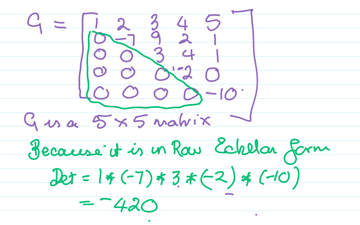 G = [1 2 3 4 5
0 -7 9 2 1
0 0 3 4 1
0 0 0 -2 0
0 0 0 0 -10]
G is a 5×5 matrix
Because it is in Row Echelon form
Det = 1 * (-7) * 3 * (-2) * (-10)
= -420